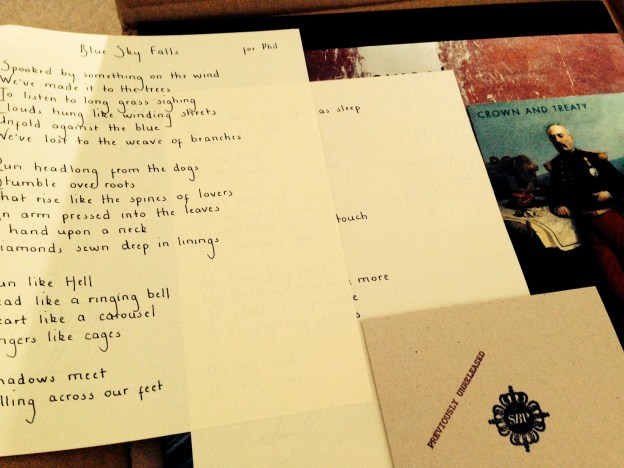 Blue Sky Falls for Phil
Spooked by something on the wind
We've made it to the trees
To listen to long grass sighing
louds hung like winding sheets
Unfold against the blue
We've lost to the weave of branches
Run headlong from the dogs
Stumble over roots
hat rise like the spines of lovers
n arm pressed into the leaves
hand upon a neck
iamonds sewn deep in linings
un like Hell
ead like a ringing bell
eart like a carousel
ngers like cages
hadows meet
lling across our feet
as sleep
touch
more
CROWN AND TREATY
PREVIOUSLY UNRELEASED
SBP